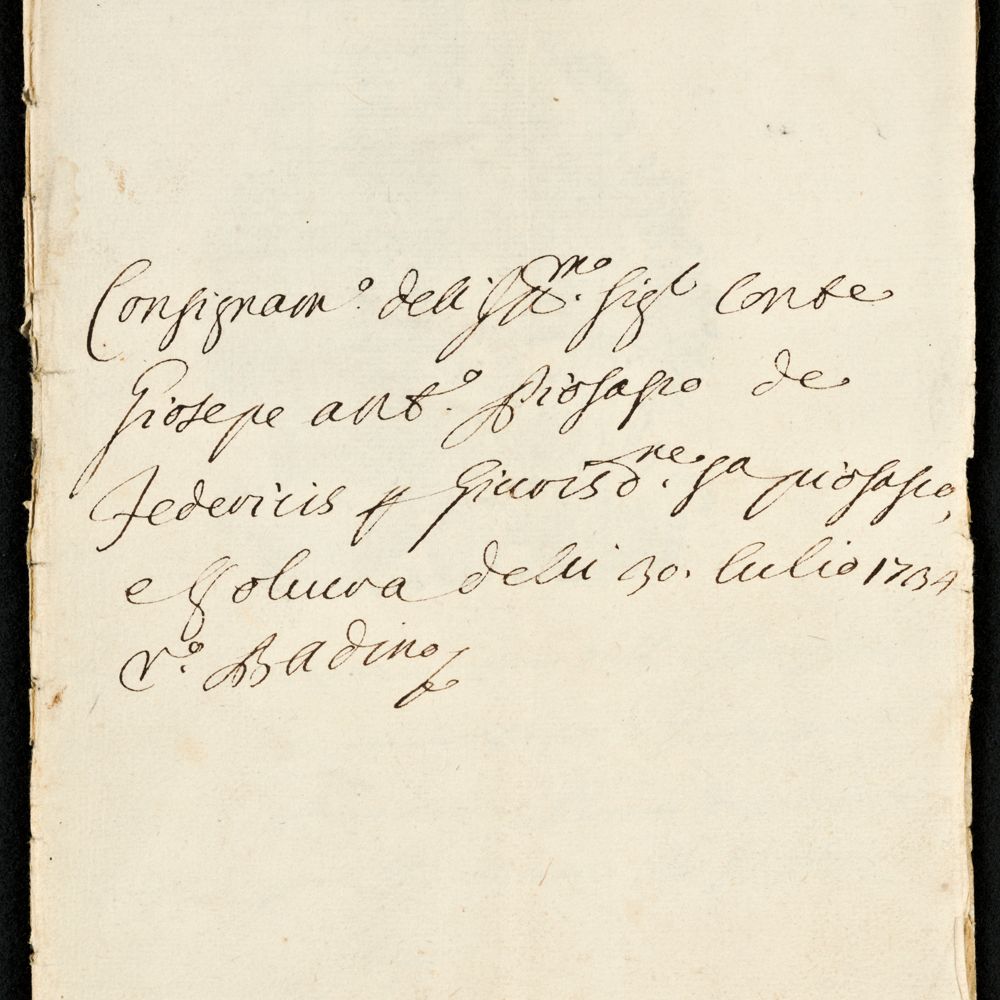 Consignam.º dell' Ill.mo sig.r Conte
Gioseppe ant.º Piosasco de
Federicis p Giurisd.ne sa piosasco,
e Volvera delli 30. Luglio 1734
r.º Badino